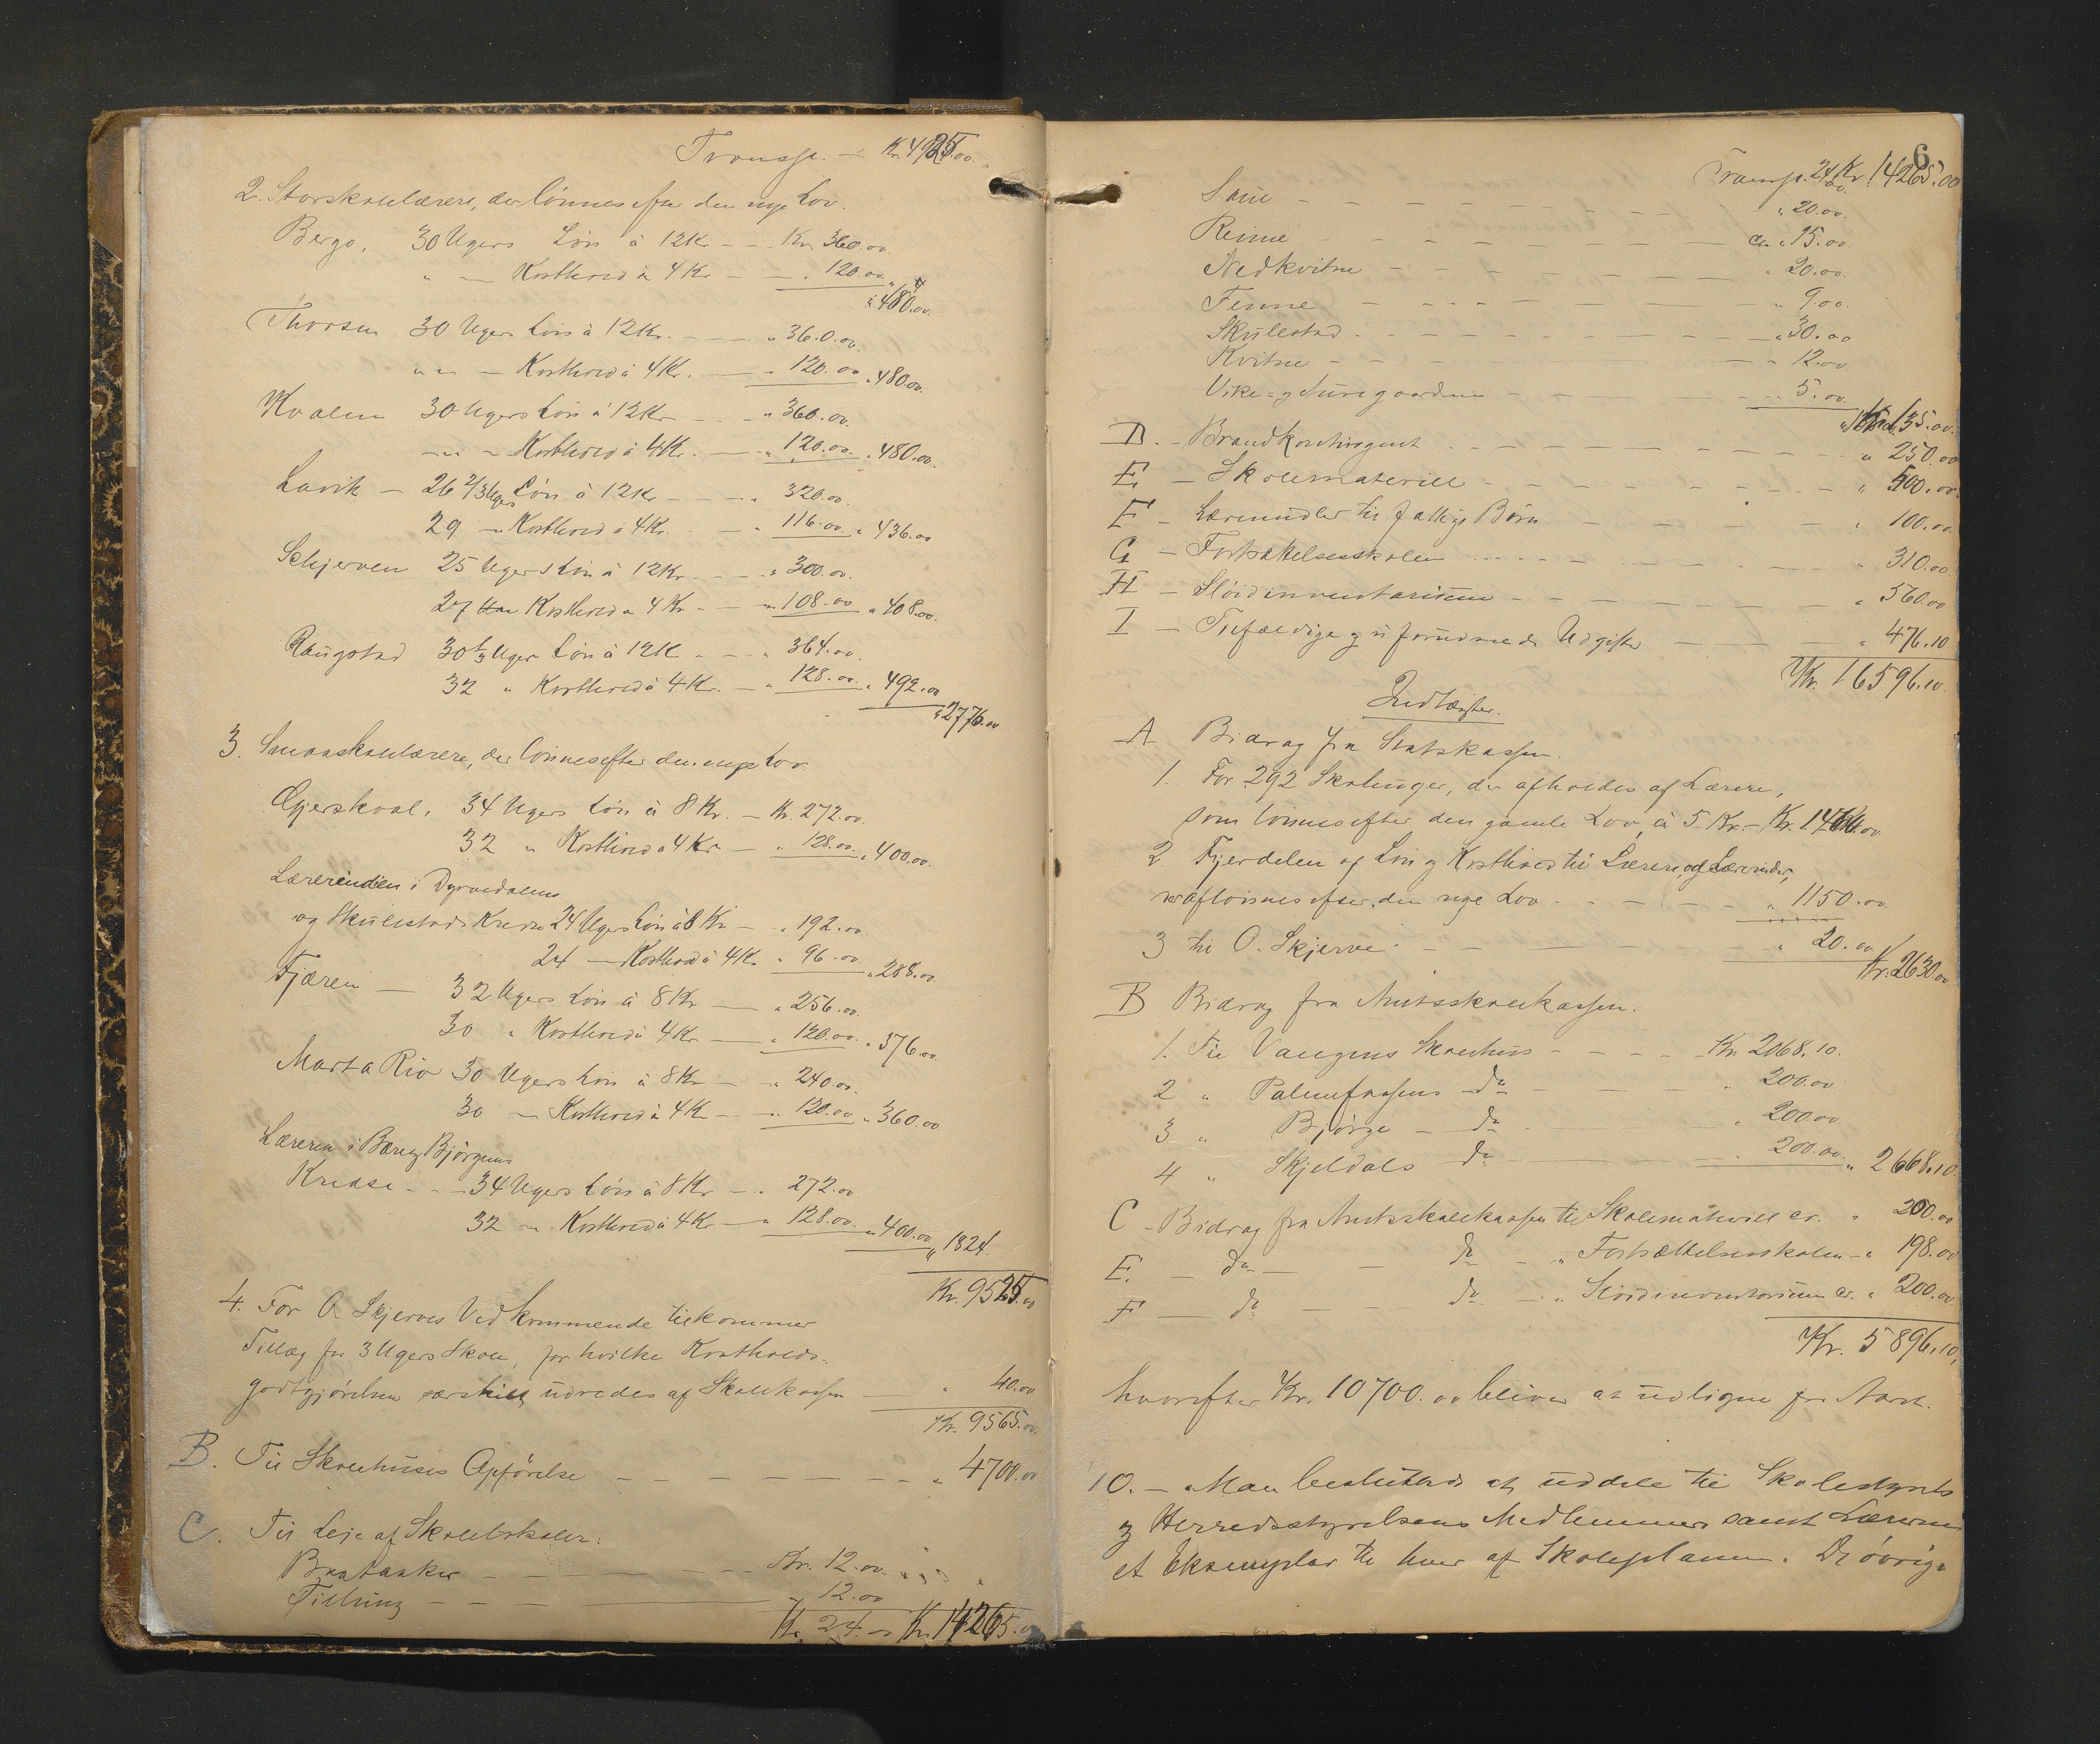 Transp. — Kr. 4925.00
2. Storskolelærere, der lønnes efter den nye Lov.
Bergo, 30 Ugers Løn à 12 Kr — — Kr. 360.00
" — Kosthold à 4 Kr — — " 120.00 " 480.00
Thorsen 30 Ugers Løn à 12 Kr. — — " 360.00
" " — Kosthold à 4 Kr. — " 120.00 " 480.00
Kvalem 30 Ugers Løn à 12 Kr — — " 360.00
— " — Kosthold à 4 Kr. — " 120.00 " 480.00
Lavik — 26 2/3 Ugers Løn à 12 Kr — — " 320.00
29 — Kosthold à 4 Kr. — " 116.00 " 436.00
Schjerven 25 Ugers Løn à 12 Kr. — — " 300.00
27 Kosthold à 4 Kr — — " 108.00 " 408.00
Raugstad 30 1/3 Uger Løn à 12 K — — " 364.00
32 " Kosthold à 4 Kr. — " 128.00 " 492.00
" 2776.00
3. Smaaskolelærere, der lønnes efter den nye Lov
Gjerskval, 34 Ugers Løn à 8 Kr. — Kr. 272.00
32 " Kosthold à 4 Kr — " 128.00 " 400.00
Lærerinden i Dyrvedalens
og Skulestads Kredse 24 Ugers Løn à 8 Kr — " 192.00
24 — Kosthold à 4 Kr " 96.00 " 288.00
Fjæren — 32 Ugers Løn à 8 Kr — " 256.00
30 " Kosthold à 4 Kr — " 120.00 " 376.00
Marta Rio 30 Ugers Løn à 8 Kr — " 240.00
30 — Kosthold à 4 Kr — " 120.00 " 360.00
Læreren i Bær og Bjørgums
Kredse — — 34 Ugers Løn à 8 Kr — " 272.00
32 — Kosthold à 4 Kr — " 128.00 " 400.00 " 1824.
Kr. 9525.00
4. For O. Skjerves Vedkommende tilkommer
Tillæg for 3 Ugers Skole, for hvilke Kostholds-
godtgjørelsen særskilt udredes af Skolekassen — " 40.00
Kr. 9565.00
B. Til Skolehuses Opførelse — — — — — — " 4700.00
C. Til Leje af Skolelokaler:
Brataaker — — — — — Kr. 12.00
Tillung — — — — " 12.00
Kr. 24.00 Kr. 14265.00
6
Transp. 24.00 Kr. 14265.00
Saue — — — — — — — " 20.00
Reime — — — — — — ca " 15.00
Nedkvitne — — — — — — " 20.00
Finne — — — — — — " 9.00
Skulestad — — — — — — " 30.00
Kvitne — — — — — — " 12.00
Vike og Nuregaarden — — — — " 5.00
135.00
D. — Brandkontingent — — — — — — " 250.00
E. — Skolemateriell — — — — — — " 500.00
F — Læremidler til fattige Børn — — — — " 100.00
G — Fortsættelsesskolen — — — — — " 310.00
H — Sløidinventarium — — — — — " 560.00
I — Tilfældige og uforudseede Udgifter — — " 476.10
Kr. 16596.10
Indtægter.
A Bidrag fra Statskassen.
1. For 292 Skoleuger, der afholdes af Lærere,
som lønnes efter den gamle Lov, à 5 Kr. — Kr. 1460.00
2. Fjerdelen af Løn og Kosthold til Lærere og Lærerinder,
som aflønnes efter den nye Lov — — — — " 1150.00
3 til O. Skjerve — — — — " 20.00 Kr. 2630.00
B Bidrag fra Amtsskolekassen.
1. Til Vangens Skolehus — — — — Kr 2068.10.
2 " Palmefossens do — — " 200.00
3 " Bjørge — do — — " 200.00
4 " Skjeldals do — — " 200.00 " 2668.10
C — Bidrag fra Amtsskolekassen til Skolemateriell cr. " 200.00
E. — do — — do — " Fortsættelsesskolen — " 198.00
F — do — — do — " Sløidinventarium cr. " 200.00
Kr. 5896.10
hvorefter Kr. 10700.00 bliver at udligne for Aaret.
10. — Man besluttede at uddele til Skolestyrets
og Herredsstyrelsens Medlemmer samt Lærerne
et Eksemplar til hver af Skoleplanen. De øvrige